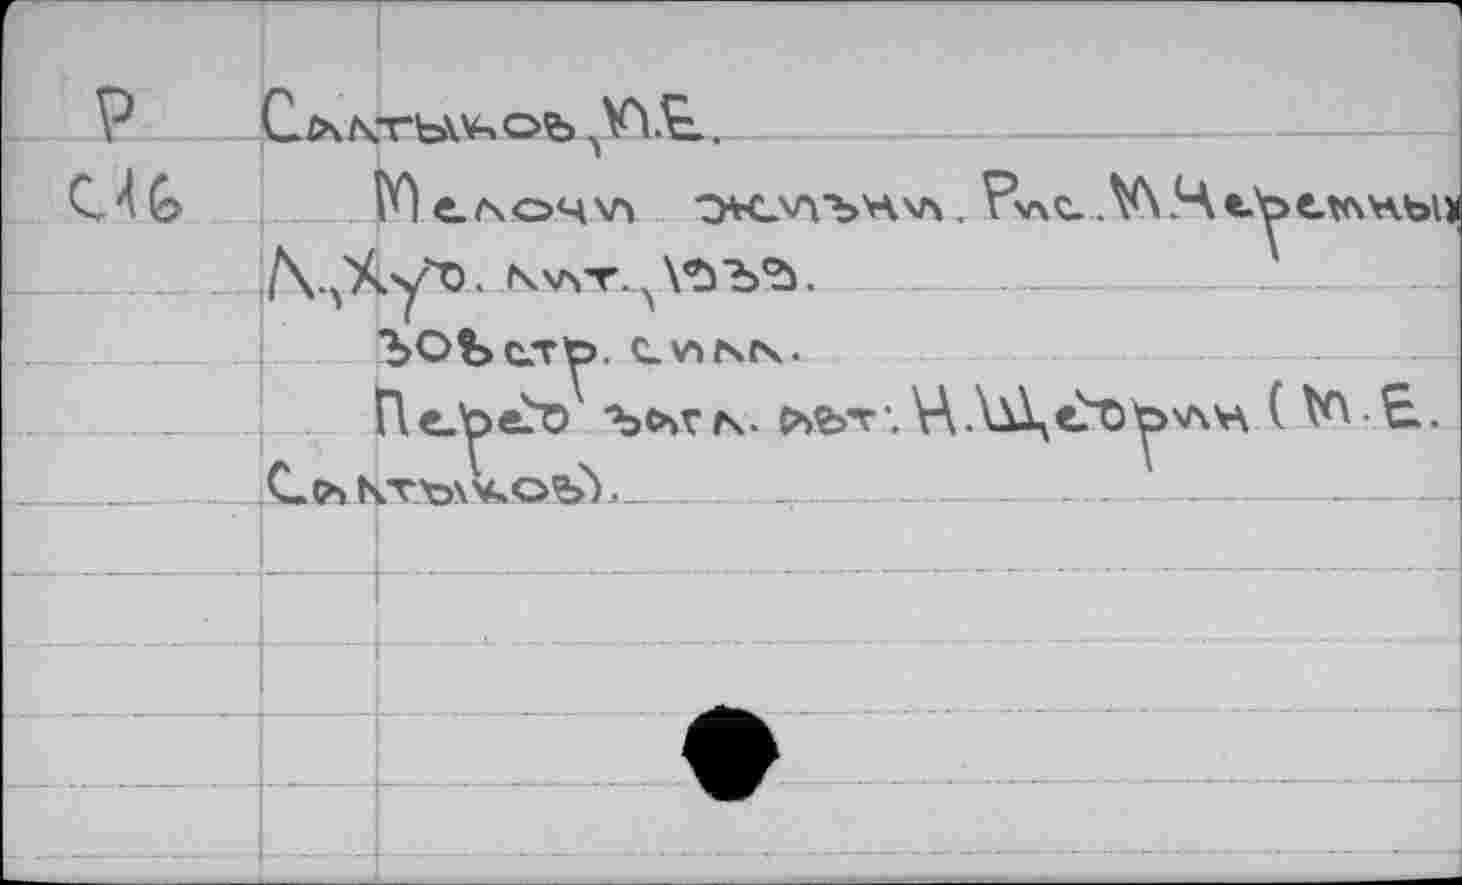 Р Салтыков, М.Е.
С16 Мелочи жизни. Рис. М. Черемных
Л., Худ. лит., 1939.
308 стр. с илл.
Перед загл. авт: Н. Щедрин (М. Е.
Салтыков).